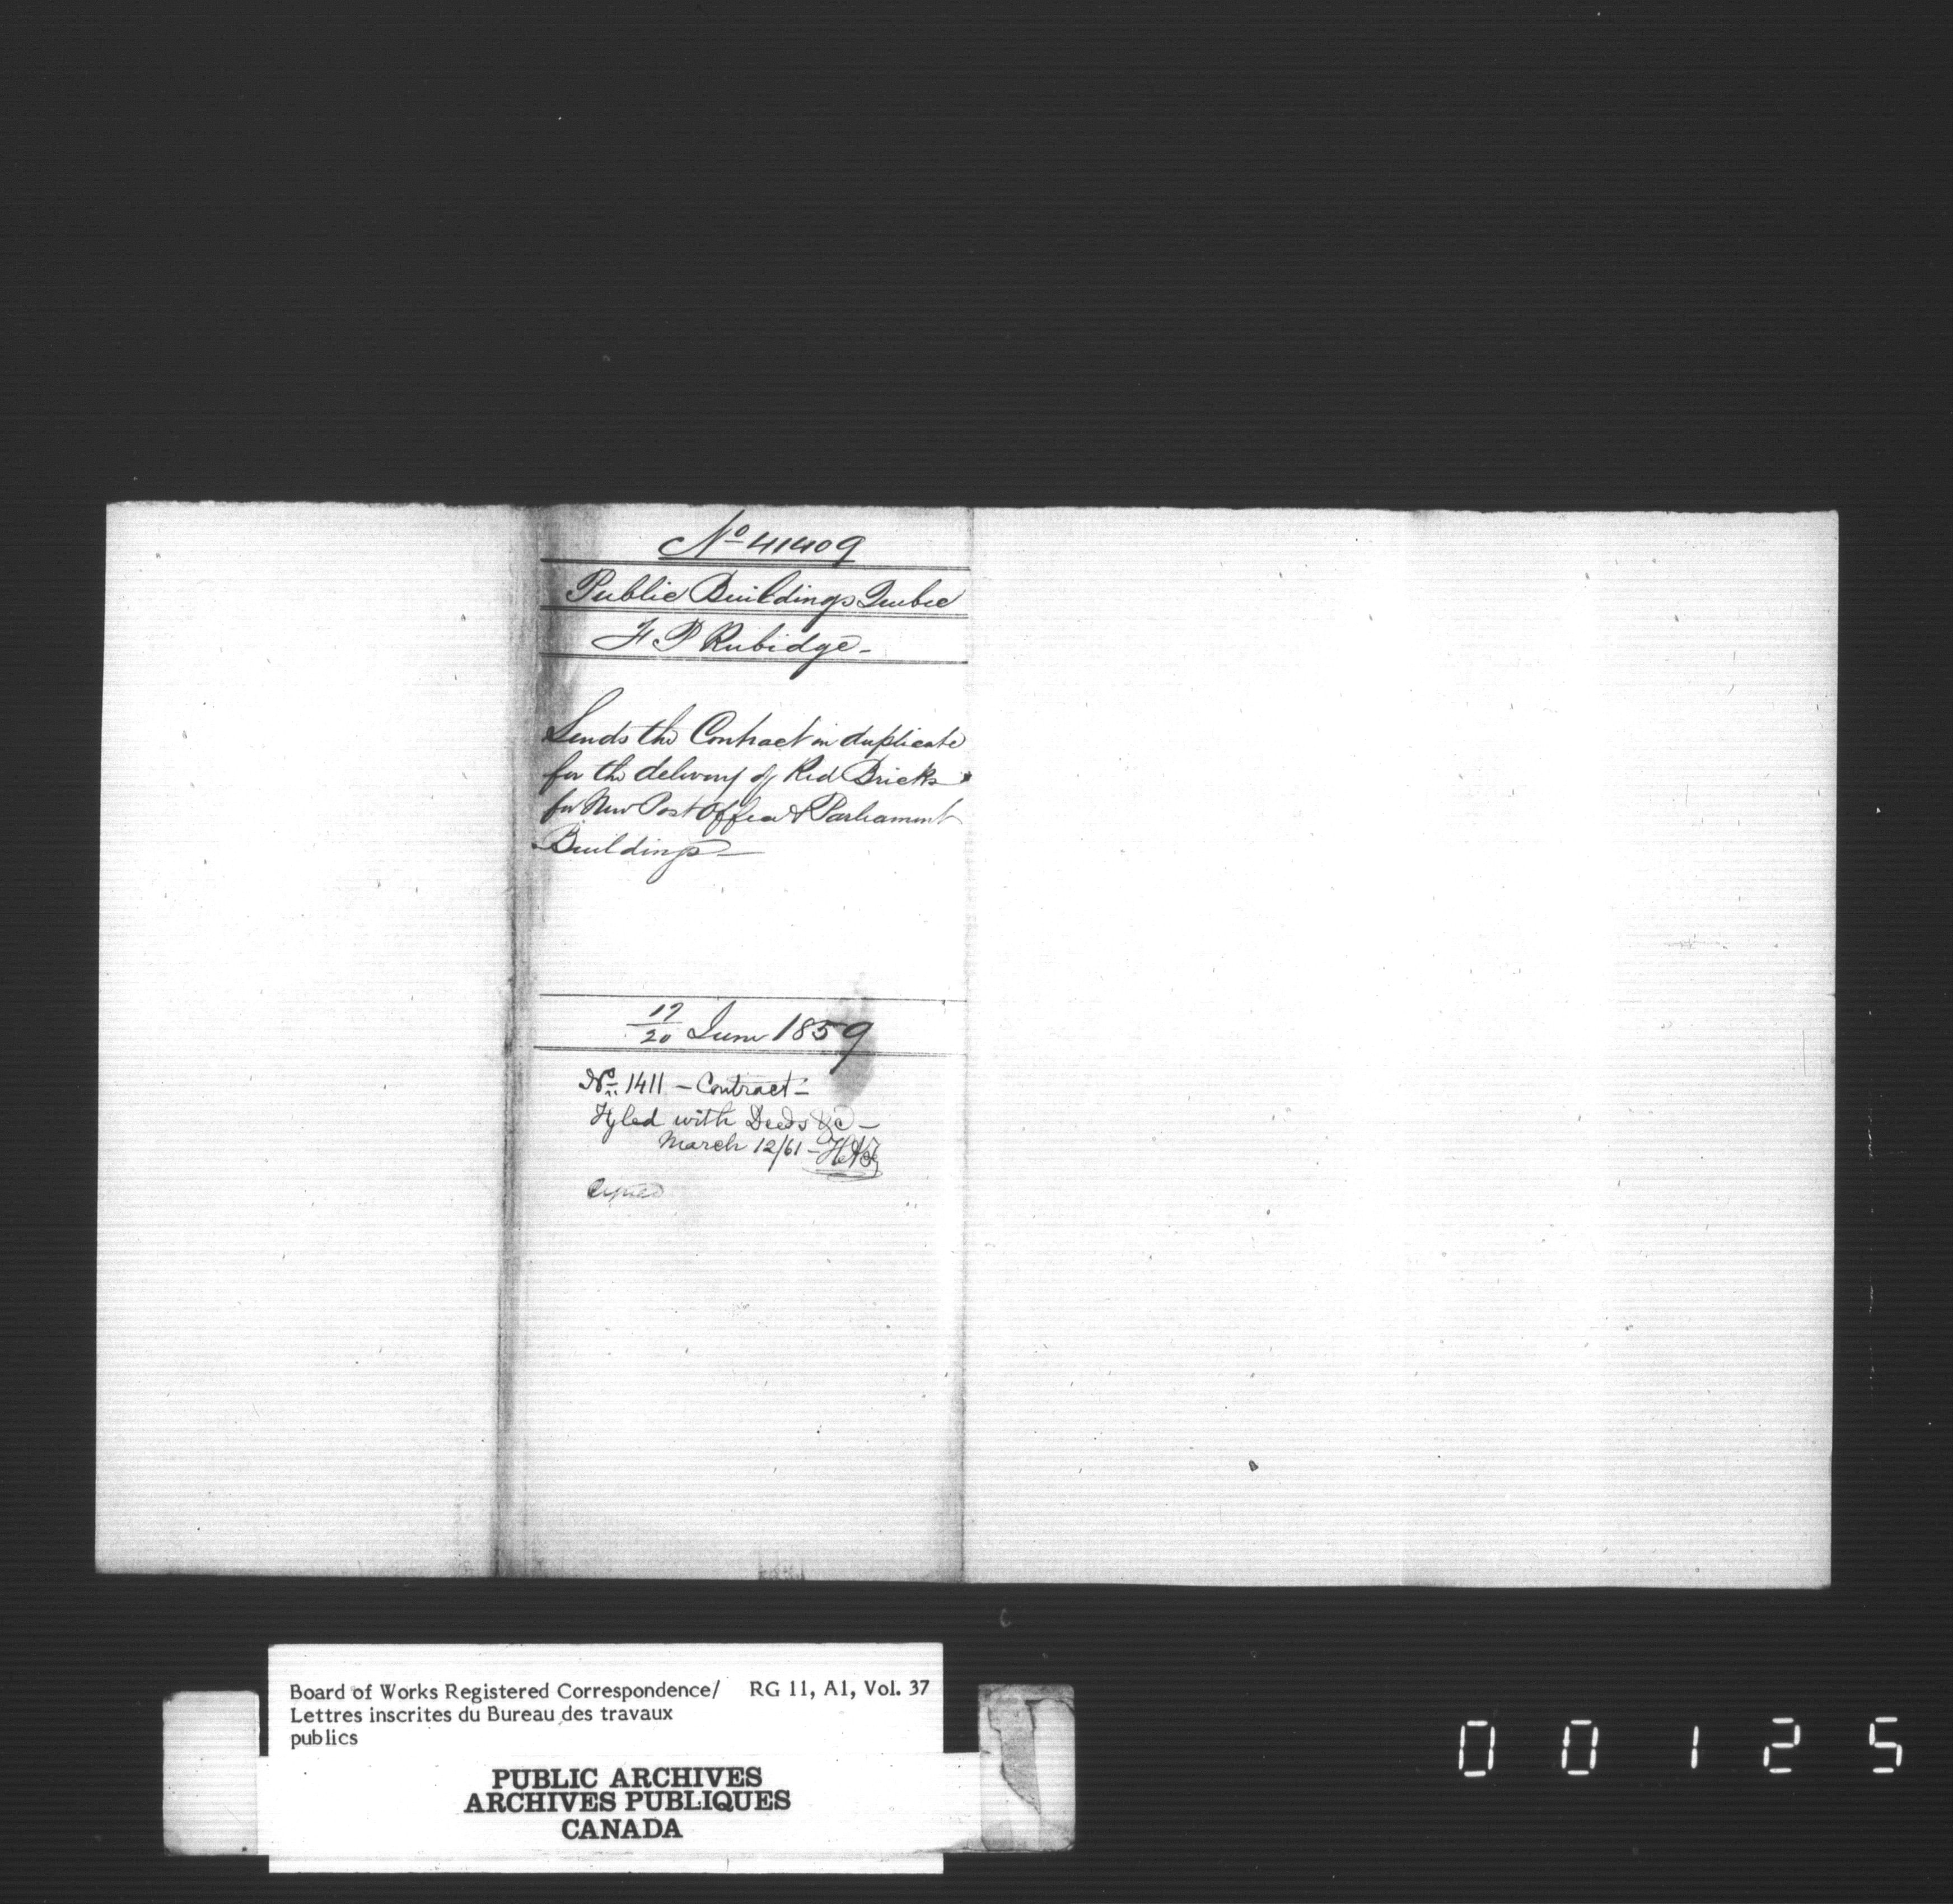 No 41409
Public Buildings Quebec
F P Rubidge -
Sends the Contract in duplicate
for the delivery of Red Bricks
for New Post Office & Parliament
Buildings -
17/20 June 1859
No. 1411 - Contract -
Fyled with Deeds &c -
March 12/61 -
Copied
Board of Works Registered Correspondence/ RG 11, A1, Vol. 37
Lettres inscrites du Bureau des travaux
publics
PUBLIC ARCHIVES
ARCHIVES PUBLIQUES
CANADA
00125